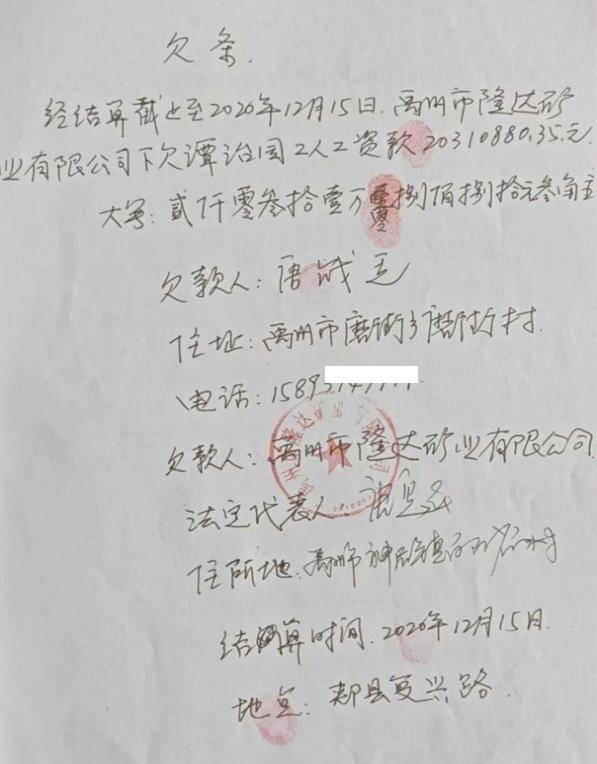 欠条.
经结算截止至2020年12月15日.禹州市隆达矿
业有限公司下欠谭治国工人工资款20310880.35.元.
大写:贰仟零叁拾壹万零捌佰捌拾元叁角
欠款人:唐
住址:禹州市磨街乡磨街村.
电话:1589
欠款人:禹州市隆达矿业有限公司
法定代表人:
住所地:禹州市神垕镇
结算时间.2020年12月15日.
地点:郏县复兴路.